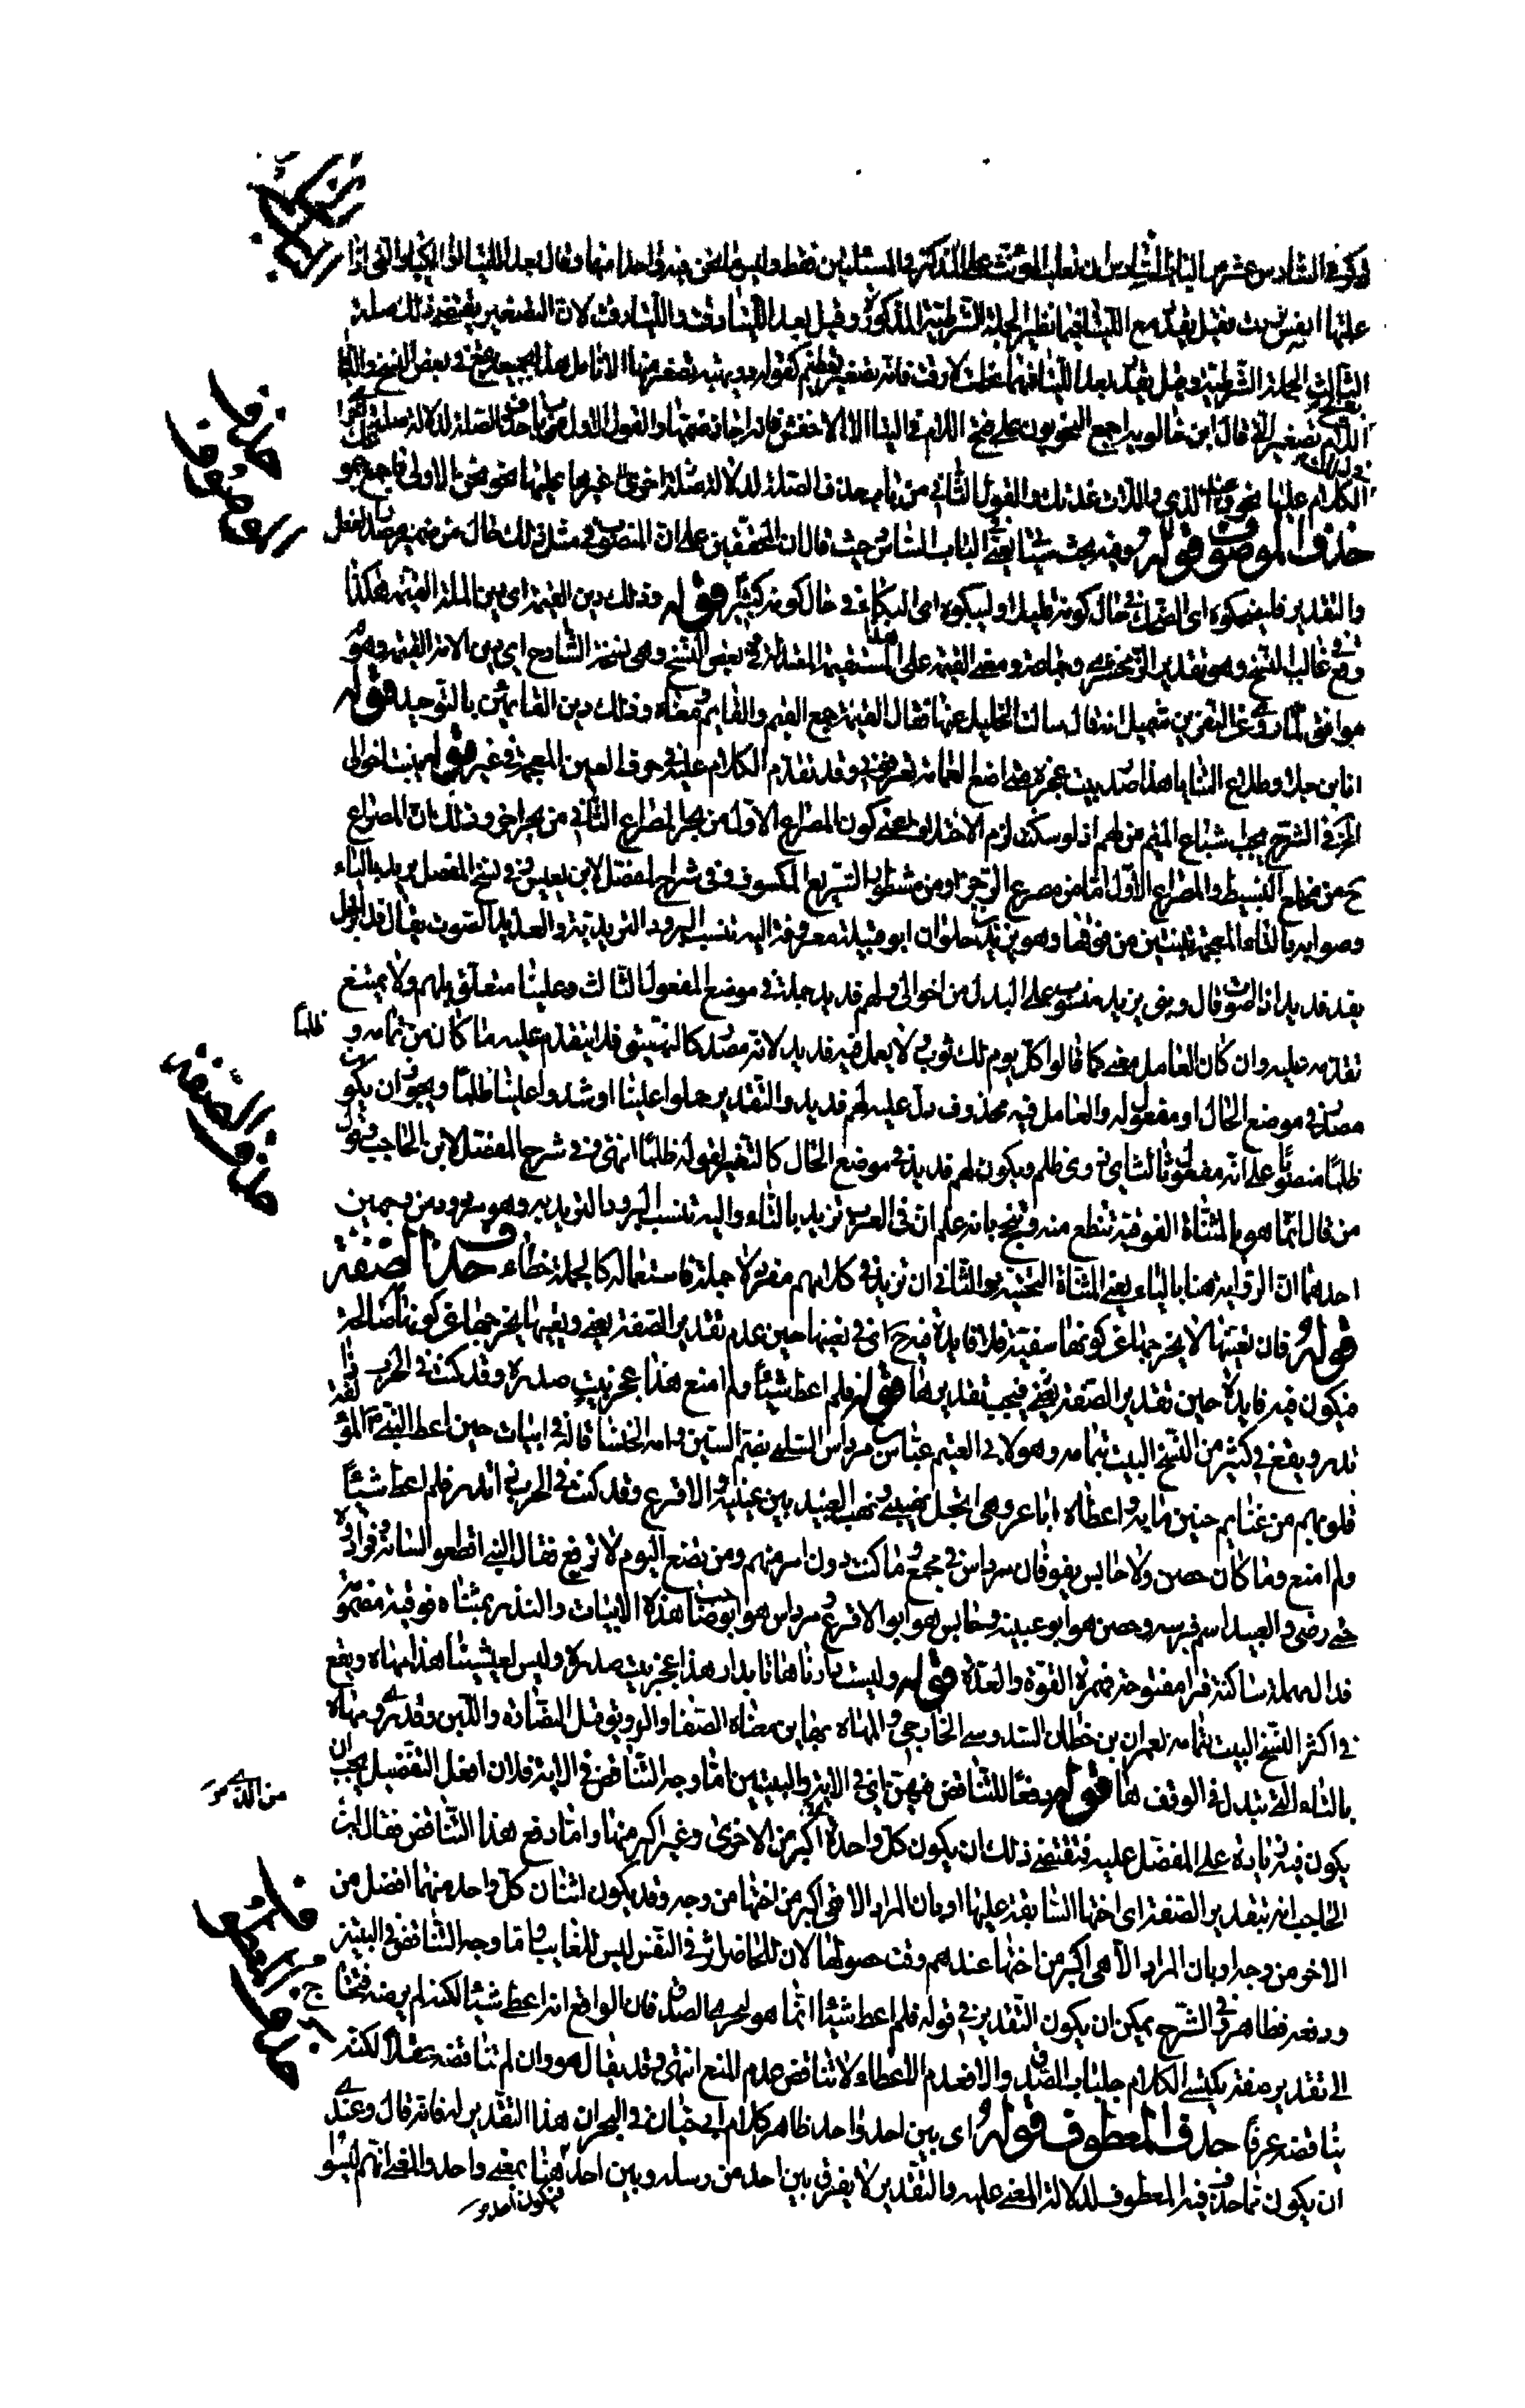 عليها انفس تردت فقيل يقدر مع اللتيا فيهما نظير الجملة الشرطية المذكورة وقيل يعد اللتيا دقت واللتيا دقت لان التصغير يقتضي ذلك صلة
الثالث الجملة الشرطية وقيل يقدر بعد اللتيا فيهما عظمت لا دقت فانه تصغير تعظيم كقوله دويهية تصفر منها الانامل
قال ابن خالويه اجمع النحويون على فتح اللام في اللتيا الا الاخفش فانه اجاز ضمها والقول الاول من باب حذف الصلة لدلالة صلة اخرى
الكلام عليها نحو والقول الثاني من باب حذف الصلة لدلالة غيرها عليها نحو نحن الاولى فاجمع جمو
حذف الموصوف قوله وفيه بحث سيأتي يعني الباب السادس حيث قال ان المحققين على ان المنصوب في مثل ذلك حال من ضمير مصدر الفعل
والتقدير فليضحكوه اي الضحك في حال كونه قليلا وليبكوه اي البكاء في حال كونه كثيرا قوله وذلك دين القيمة اي دين الملة القيمة هكذا
وقع في غالب النسخ وهو تقدير الزمخشري وجماعة ومعنى القيمة على هذا المستقيمة المعتدلة وفي بعض النسخ وهي نسخة الشارح اي دين الامة القيمة وهو
موافق لما روي عن النضر بن شميل انه قال سالت الخليل عنها فقال القيمة جمع القيم والقايم معناه وذلك دين القايمين بالتوحيد قوله
انا ابن جلا وطلاع الثنايا هذا صدر بيت عجزه متى اضع العمامة تعرفوني وقد تقدم الكلام عليه في حرف العين المعجمة في غير قوله نبئت اخوالي
الخ في الشرح يجب اشباع الميم من لهم اذ لو سكنت لزم الاختلاف يعني كون المصراع الاول من بحر والمصراع الثاني من بحر اخر وذلك ان المصراع
ح من مخلع البسيط والمصراع الاول اما من مصرع الرجز او من مشطور السريع المكسوف وفي شرح المفصل لابن يعيش في نسخ المفصل يزيد بالياء
وصوابه بالتاء المعجمة بثنتين من فوقها وهو تزيد بن حلوان ابو قبيلة معروفة اليه تنسب البرود التزيدية والفديد الصوت يقال فد الرجل
يفد فديدا اذا صوت قال وبني يزيد منصوب على البدل من اخوالي ولهم فديد جملة في موضع المفعول الثالث وعلينا متعلق بلهم ولا يمتنع
تقدمه عليه وان كان العامل معنى كما قالوا كل يوم لك ثوب ولا يعمل فيه فديد لانه مصدر كالنهيق فلا يتقدم عليه ما كان من تمامه و
ظلما
مصدر في موضع الحال او مفعول له والعامل فيه محذوف دل عليه لهم فديد والتقدير حملوا علينا او شدوا علينا ظلما ويجوز ان يكو
ظلما منصوبا على انه مفعول ثالث اي ذوي ظلم ويكون لهم فديد في موضع الحال كالتفسير لقوله ظلما انتهى وفي شرح المفصل لابن الحاجب وقول
من قال انما هو بالمثناة الفوقية تنطع منه وتبجح بانه علم ان في العرب تزيد بالتاء واليه تنسب البرود التزيدية وهو مردود من وجهين
احدهما ان الرواية هنا بالياء يعني المثناة التحتية والثاني ان تزيد في كلامهم مفرد لا جملة فاستعماله كالجملة خطاء حذف الصفة
قوله فان تعييبها لا يخرجها عن كونها سفينة فلا فايدة فيه ح اي في تعييبها حين عدم تقدير الصفة يعني وتعييبها يخرجها عن كونها صالحة
فيكون فيه فايدة حين تقدير الصفة يعني فيجب تقديرها قوله فلم اعط شيئا ولم امنع هذا عجز بيت صدره وقد كنت في الحرب ذا
تدره ويقع في كثير من النسخ البيت بتمامه وهو لابي الهيثم عباس بن مرداس السلمي بضم السين وامه الخنسا قاله في ابيات حين اعطى النبي ص المؤ
قلوبهم من غنايم حنين ماية واعطاه اباعر وهي اتجعل نهبي ونهب العبيد بين عيينة والاقرع وقد كنت في الحرب ذا تدره فلم اعط شيئا
ولم امنع وما كان حصن ولا حابس يفوقان مرداس في مجمع وما كنت دون امرء منهم ومن تضع اليوم لا يرفع فقال النبي اقطعوا لسانه فزادوه
حتى رضي والعبيد اسم فرسه وحصن هو ابو عيينة وحابس هو ابو الاقرع ومرداس هو ابو صاحب هذه الابيات والتدره بمثناه فوقية مضمو
فدال مهملة ساكنة فرا مفتوحة فهمزة القوة والعدة قوله وليست دارنا هاتا بدار هذا عجز بيت صدره وليس لعيشنا هذا مهاه ويقع
في اكثر النسخ البيت بتمامه لعمران بن حطان السدوسي الخارجي والمهاه بهاين معناه الصفا والرونق
بالتاء التي تبدل في الوقف ها قوله دفعا للتناقض فيهن اي في الاية والبيتين اما وجه التناقض في الاية فلان افعل التفضيل يجب ان
يكون فيه زيادة على المفضل عليه فيقتضي ذلك ان يكون كل واحدة اكبر من الاخرى وغير اكبر منها واما دفع هذا التناقض فقال ابن
الحاجب انه بتقدير الصفة اي اختها السابقة عليها او بان المراد الا هي اكبر من اختها من وجه وقد يكون اثنان كل واحد منهما افضل من
الاخر من وجه او بان المراد الا هي اكبر من اختها عندهم وقت حصولها لان للحاضر اثر في النفس ليس للغايب واما وجه التناقض في البيتين
ودفعه فظاهر وفي الشرح يمكن ان يكون التقدير في قوله فلم اعط شيئا انما هو لتحري الصدق فان الواقع انه اعطى شيئا لكنه لم يرضه
الى تقدير صفة يكتسي الكلام جلباب الصدق والا فعدم الاعطاء لا تناقض عدم المنع انتهى وقد يقال هو وان لم تناقضه عقلا لكنه
يناقضه عرفا حذف المعطوف قوله اي بين احد واحد ظاهر كلام ابي حيان في البحر ان هذا التقدير له فانه قال وعندي
ان يكون مما حذف فيه المعطوف لدلالة المعنى عليه والتقدير لا يفرق بين احد من رسله وبين احد هنا بمعنى واحد والمعنى انهم ليسوا
حذف الموصوف
حذف الصفة
حذف المعطوف